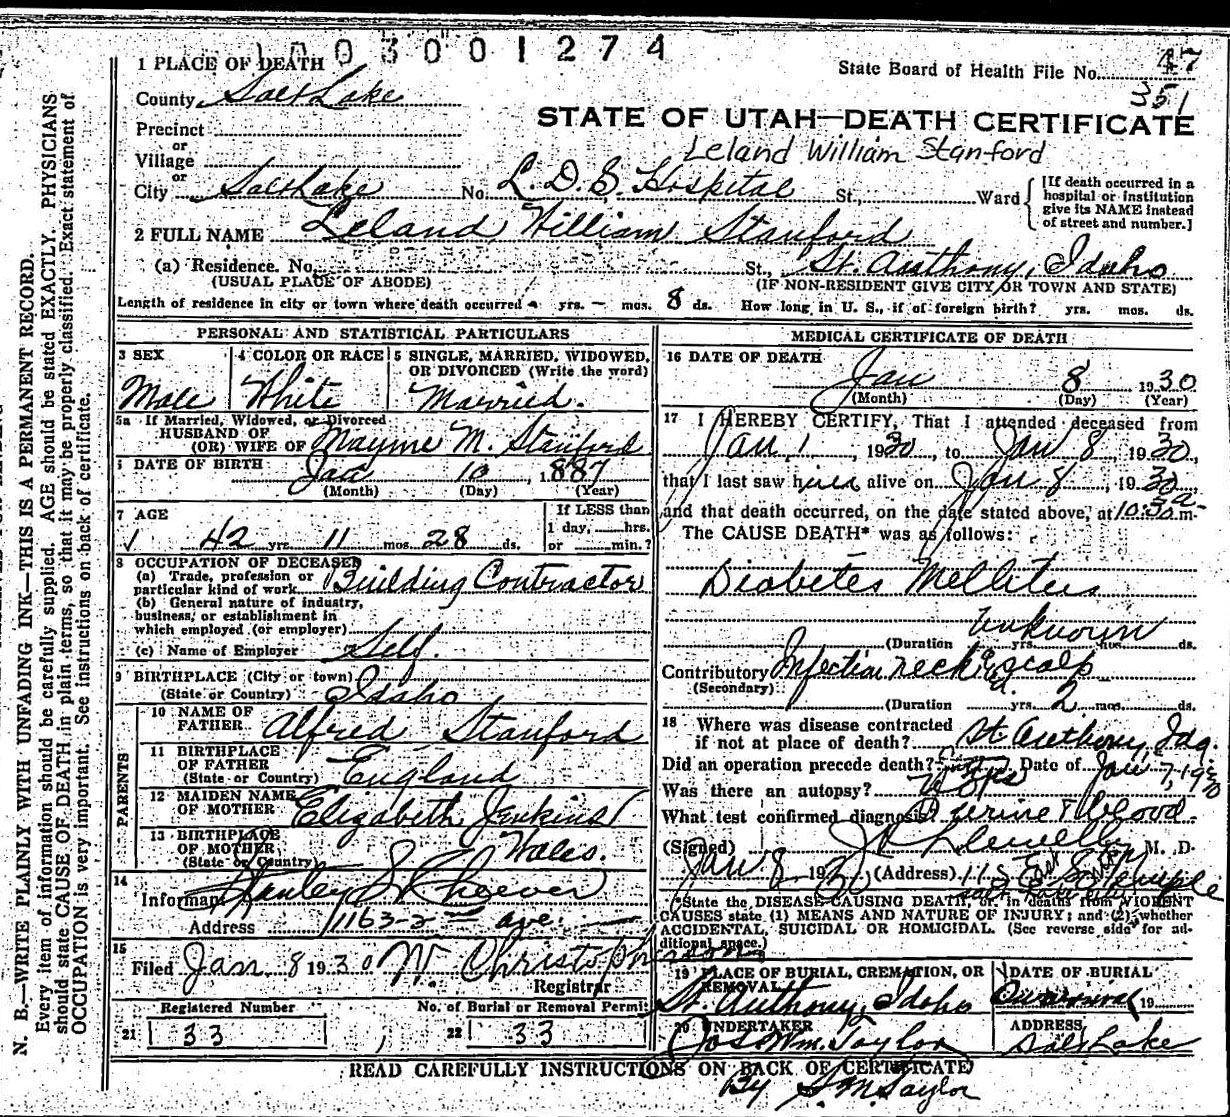 1003001274
1 PLACE OF DEATH
State Board of Health File No. 47
351
County Salt Lake
STATE OF UTAH—DEATH CERTIFICATE
Precinct
or
Leland William Stanford
Village
or
City Salt Lake No. L. D. S. Hospital St., Ward
[If death occurred in a
hospital or institution
give its NAME instead
of street and number.]
2 FULL NAME Leland William Stanford
(a) Residence. No. St., St. Anthony, Idaho
(USUAL PLACE OF ABODE) (IF NON-RESIDENT GIVE CITY OR TOWN AND STATE)
Length of residence in city or town where death occurred - yrs. - mos. 8 ds. How long in U. S., if of foreign birth? yrs. mos. ds.
PERSONAL AND STATISTICAL PARTICULARS
3 SEX
Male
4 COLOR OR RACE
White
5 SINGLE, MARRIED, WIDOWED,
OR DIVORCED (Write the word)
Married.
5a If Married, Widowed, or Divorced
HUSBAND OF
(OR) WIFE OF Mayme M. Stanford
6 DATE OF BIRTH Jan 10, 1887
(Month) (Day) (Year)
7 AGE
42 yrs. 11 mos. 28 ds.
If LESS than
1 day, hrs.
or min.?
8 OCCUPATION OF DECEASED
(a) Trade, profession or
particular kind of work Building Contractor
(b) General nature of industry,
business, or establishment in
which employed (or employer)
(c) Name of Employer Self.
9 BIRTHPLACE (City or town)
(State or Country) Idaho
PARENTS
10 NAME OF
FATHER Alfred Stanford
11 BIRTHPLACE
OF FATHER
(State or Country) England
12 MAIDEN NAME
OF MOTHER Elizabeth Jenkins
13 BIRTHPLACE
OF MOTHER
(State or Country) Wales.
14
Informant Stanley S. Cheever
Address 1163-2nd ave.
15
Filed Jan. 8 1930 W. Christopherson
Registrar
Registered Number
21 33
No. of Burial or Removal Permit
22 33
MEDICAL CERTIFICATE OF DEATH
16 DATE OF DEATH
Jan 8 1930
(Month) (Day) (Year)
17 I HEREBY CERTIFY, That I attended deceased from
Jan. 1, 1930, to Jan 8 1930,
that I last saw him alive on Jan 8, 1930
and that death occurred, on the date stated above, at 10:50 a m.
The CAUSE DEATH* was as follows:
Diabetes Mellitus
Unknown
(Duration yrs. mos. ds.
Contributory Infection neck & scalp
(Secondary)
(Duration yrs. 2 mos. ds.
18 Where was disease contracted
if not at place of death? St. Anthony, Ida.
Did an operation precede death? Date of Jan 7, 1930
Was there an autopsy?
What test confirmed diagnosis? urine & blood.
(Signed) Llewellyn M. D.
Jan 8 1930 (Address) 115 E. So. Temple
Salt Lake City
*State the DISEASE CAUSING DEATH, or, in deaths from VIOLENT
CAUSES state (1) MEANS AND NATURE OF INJURY; and (2) whether
ACCIDENTAL, SUICIDAL OR HOMICIDAL. (See reverse side for ad-
ditional space.)
19 PLACE OF BURIAL, CREMATION, OR
REMOVAL
St. Anthony, Idaho
DATE OF BURIAL
19
20 UNDERTAKER
Jos. Wm. Taylor
ADDRESS
Salt Lake
READ CAREFULLY INSTRUCTIONS ON BACK OF CERTIFICATE
By S. M. Taylor
N. B.—WRITE PLAINLY WITH UNFADING INK—THIS IS A PERMANENT RECORD.
Every item of information should be carefully supplied. AGE should be stated EXACTLY. PHYSICIANS
should state CAUSE OF DEATH in plain terms, so that it may be properly classified. Exact statement of
OCCUPATION is very important. See instructions on back of certificate.